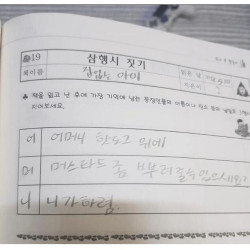 19 삼행시 짓기
책이름 집없는 아이
책을 읽고 난 후에 가장 기억에 남는 등장인물의 이름이나 장소 등의 낱말로 삼행시를 지어보세요.
어 어머니 핫도그 위에
머 머스타드 좀 뿌려줄수있으세요?
니 니가하렴.